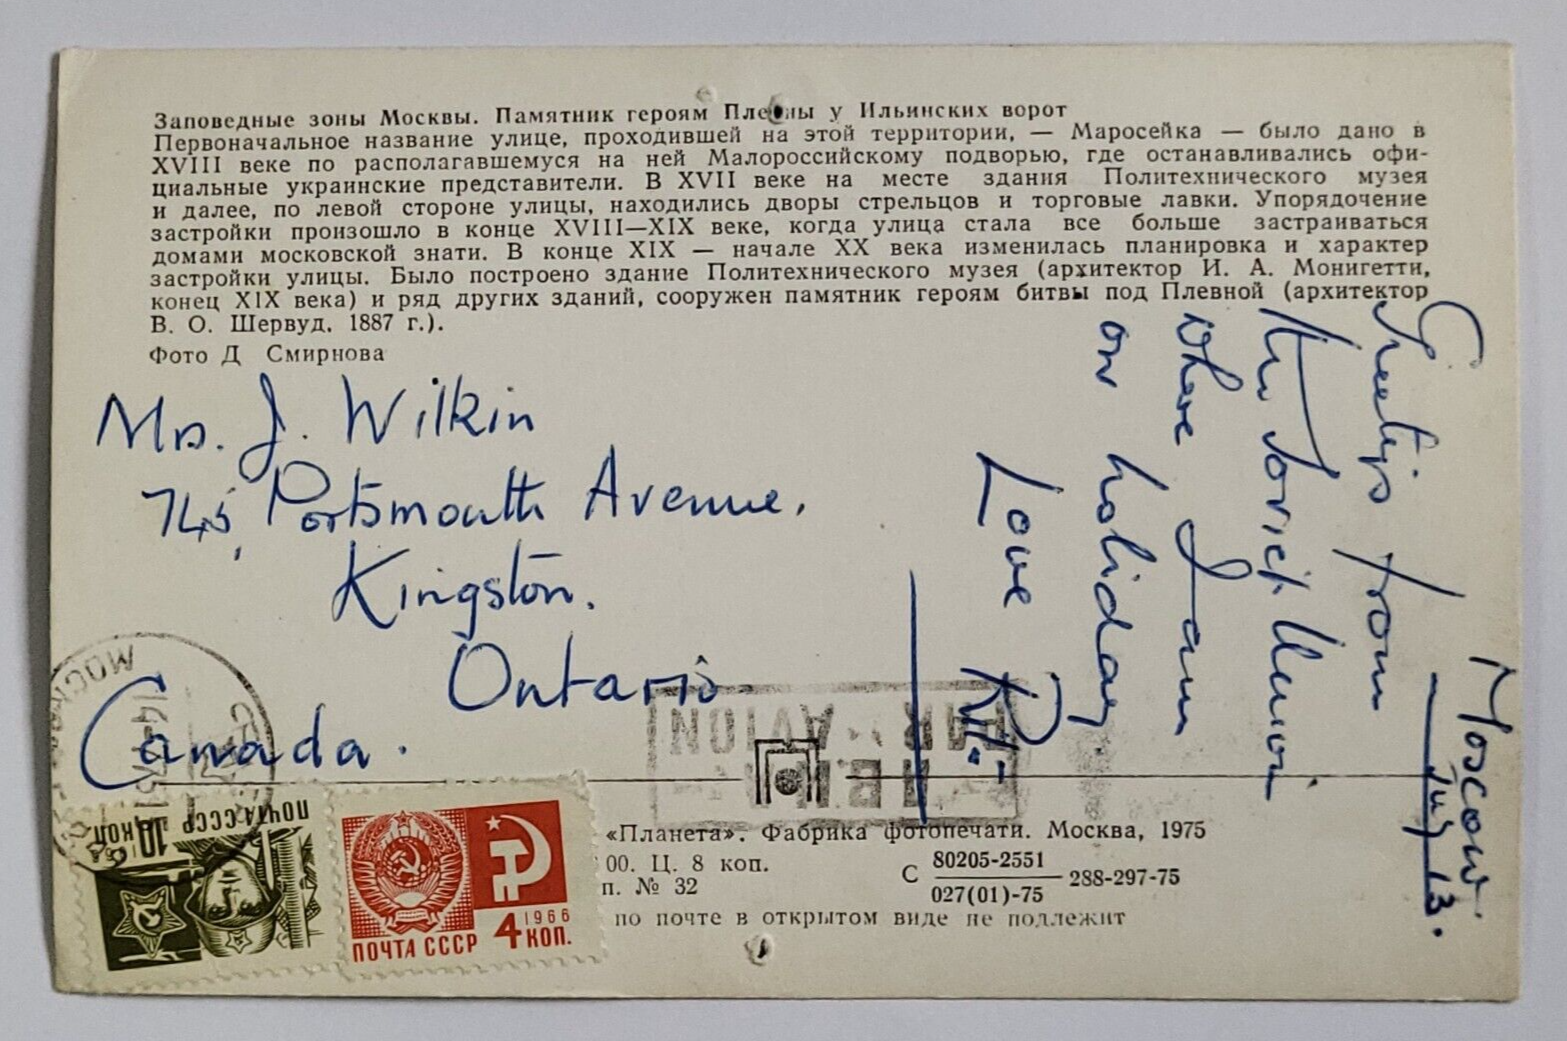 Заповедные зоны Москвы. Памятник героям Плевны у Ильинских ворот
Первоначальное название улице, проходившей на этой территории, — Маросейка — было дано в
XVIII веке по располагавшемуся на ней Малороссийскому подворью, где останавливались офи-
циальные украинские представители. В XVII веке на месте здания Политехнического музея
и далее, по левой стороне улицы, находились дворы стрельцов и торговые лавки. Упорядочение
застройки произошло в конце XVIII—XIX веке, когда улица стала все больше застраиваться
домами московской знати. В конце XIX — начале XX века изменилась планировка и характер
застройки улицы. Было построено здание Политехнического музея (архитектор И. А. Монигетти,
конец XIX века) и ряд других зданий, сооружен памятник героям битвы под Плевной (архитектор
В. О. Шервуд, 1887 г.).
Фото Д Смирнова
Mrs. J. Wilkin
745, Portsmouth Avenue.
Kingston.
Ontario.
Canada.
Moscow.
July 13.
Greetings from
the Soviet Union
where I am
on holiday.
Love
PAR AVION
МОСКВА
ПОЧТА СССР 10 КОП.
1966
ПОЧТА СССР 4 КОП.
«Планета». Фабрика фотопечати. Москва, 1975
00. Ц. 8 коп.
п. № 32
С 80205-2551
027(01)-75
288-297-75
по почте в открытом виде не подлежит